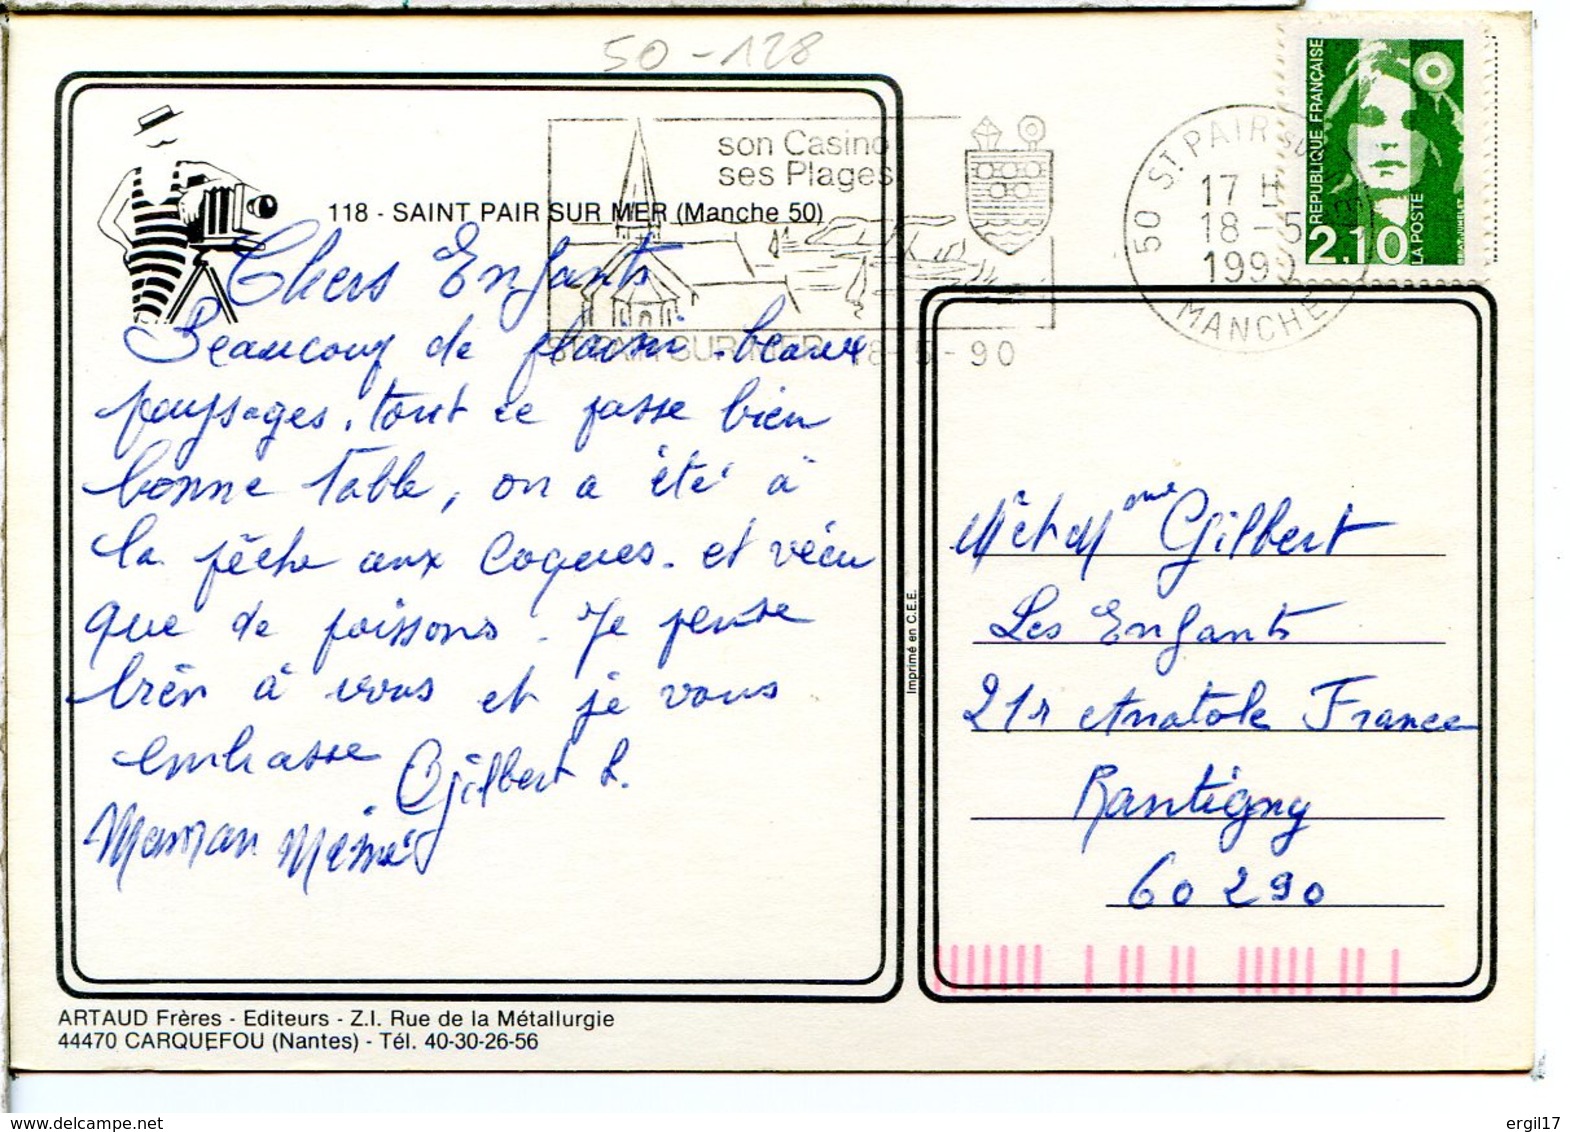 50-128
118 - SAINT PAIR SUR MER (Manche 50)
son Casino
ses Plages
ST PAIR SUR MER 18-5-90
50 ST PAIR SUR MER
17 H
18-5
1990
MANCHE
REPUBLIQUE FRANÇAISE
2,10
LA POSTE
Chers Enfants
Beaucoup de plaisir. beaux
paysages. tout ce passe bien
bonne Table, on a été à
la pêche aux Coques. et vécu
que de poissons. Je pense
bien à vous et je vous
embrasse Gilbert L.
Maman Mémé
Mr et Mme Gilbert
Les Enfants
21 r Anatole France
Rantigny
60290
Imprimé en C.E.E.
ARTAUD Frères - Editeurs - Z.I. Rue de la Métallurgie
44470 CARQUEFOU (Nantes) - Tél. 40-30-26-56
ergil17